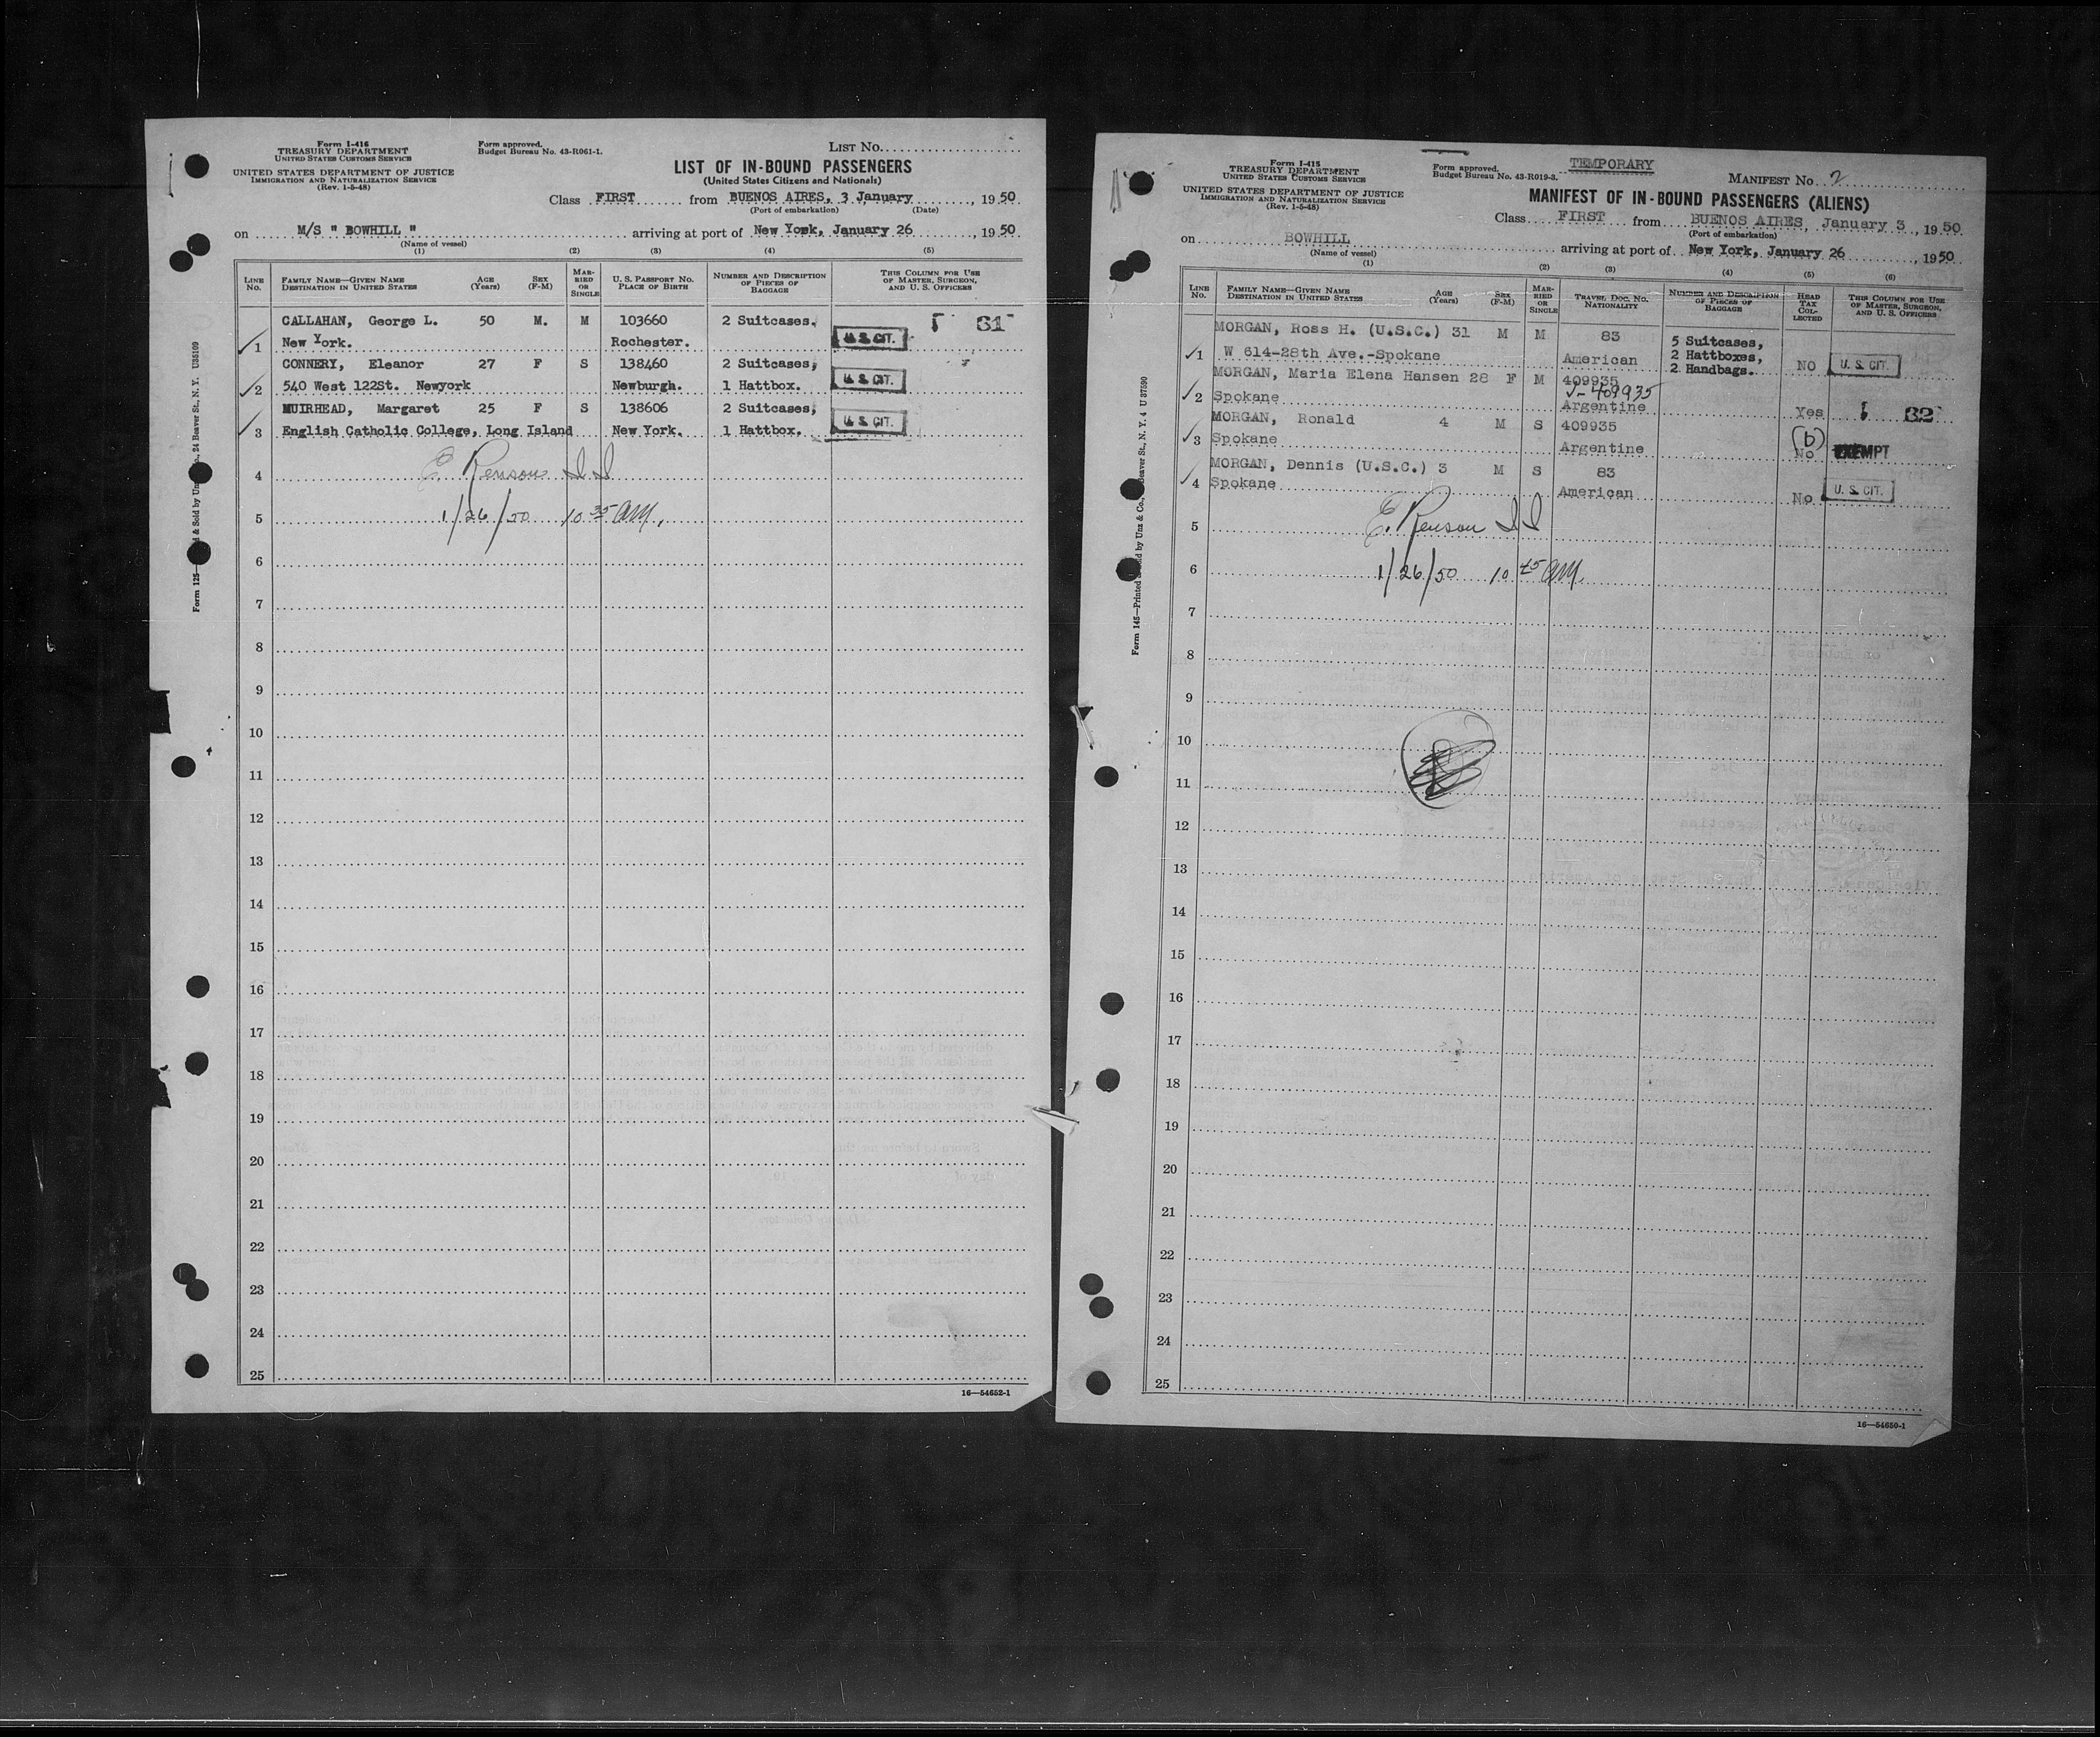 Form I-416
TREASURY DEPARTMENT
UNITED STATES CUSTOMS SERVICE
UNITED STATES DEPARTMENT OF JUSTICE
IMMIGRATION AND NATURALIZATION SERVICE
(Rev. 1-5-48)
Form approved.
Budget Bureau No. 43-R061-1.
LIST No.
LIST OF IN-BOUND PASSENGERS
(United States Citizens and Nationals)
Class FIRST from BUENOS AIRES, 3 January, 1950
(Port of embarkation) (Date)
on M/S " BOWHILL " arriving at port of New York, January 26, 1950
(Name of vessel)
(1) (2) (3) (4) (5)
LINE No. FAMILY NAME—GIVEN NAME DESTINATION IN UNITED STATES AGE (Years) SEX (F-M) MARRIED OR SINGLE U. S. PASSPORT NO. PLACE OF BIRTH NUMBER AND DESCRIPTION OF PIECES OF BAGGAGE THIS COLUMN FOR USE OF MASTER, SURGEON, AND U. S. OFFICERS
CALLAHAN, George L. 50 M. M 103660 2 Suitcases. 81
1 New York. Rochester. U. S. CIT.
CONNERY, Eleanor 27 F S 138460 2 Suitcases,
2 540 West 122St. Newyork Newburgh. 1 Hattbox. U. S. CIT.
MUIRHEAD, Margaret 25 F S 138606 2 Suitcases,
3 English Catholic College, Long Island New York. 1 Hattbox. U. S. CIT.
4 E. Renson I I
5 1/26/50 10 35 am.
6
7
8
9
10
11
12
13
14
15
16
17
18
19
20
21
22
23
24
25
16—54652-1
Form I-415
TREASURY DEPARTMENT
UNITED STATES CUSTOMS SERVICE
UNITED STATES DEPARTMENT OF JUSTICE
IMMIGRATION AND NATURALIZATION SERVICE
(Rev. 1-5-48)
Form approved.
Budget Bureau No. 43-R019-3.
TEMPORARY
MANIFEST No. 2
MANIFEST OF IN-BOUND PASSENGERS (ALIENS)
Class FIRST from BUENOS AIRES January 3, 1950
(Port of embarkation)
on BOWHILL arriving at port of New York, January 26, 1950
(Name of vessel)
(1) (2) (3) (4) (5) (6)
LINE No. FAMILY NAME—GIVEN NAME DESTINATION IN UNITED STATES AGE (Years) SEX (F-M) MARRIED OR SINGLE TRAVEL DOC. NO. NATIONALITY NUMBER AND DESCRIPTION OF PIECES OF BAGGAGE HEAD TAX COLLECTED THIS COLUMN FOR USE OF MASTER, SURGEON, AND U. S. OFFICERS
MORGAN, Ross H. (U.S.C.) 31 M M 83 5 Suitcases,
1 W 614-28th Ave.-Spokane American 2 Hattboxes, 2 Handbags. NO U. S. CIT.
MORGAN, Maria Elena Hansen 28 F M 409935
V-409935
2 Spokane Argentine Yes 82
MORGAN, Ronald 4 M S 409935
3 Spokane Argentine (b) No EXEMPT
MORGAN, Dennis (U.S.C.) 3 M S 83
4 Spokane American No U. S. CIT.
5 E. Renson I I
6 1/26/50 10 45 am.
7
8
9
10
11
12
13
14
15
16
17
18
19
20
21
22
23
24
25
16—54650-1